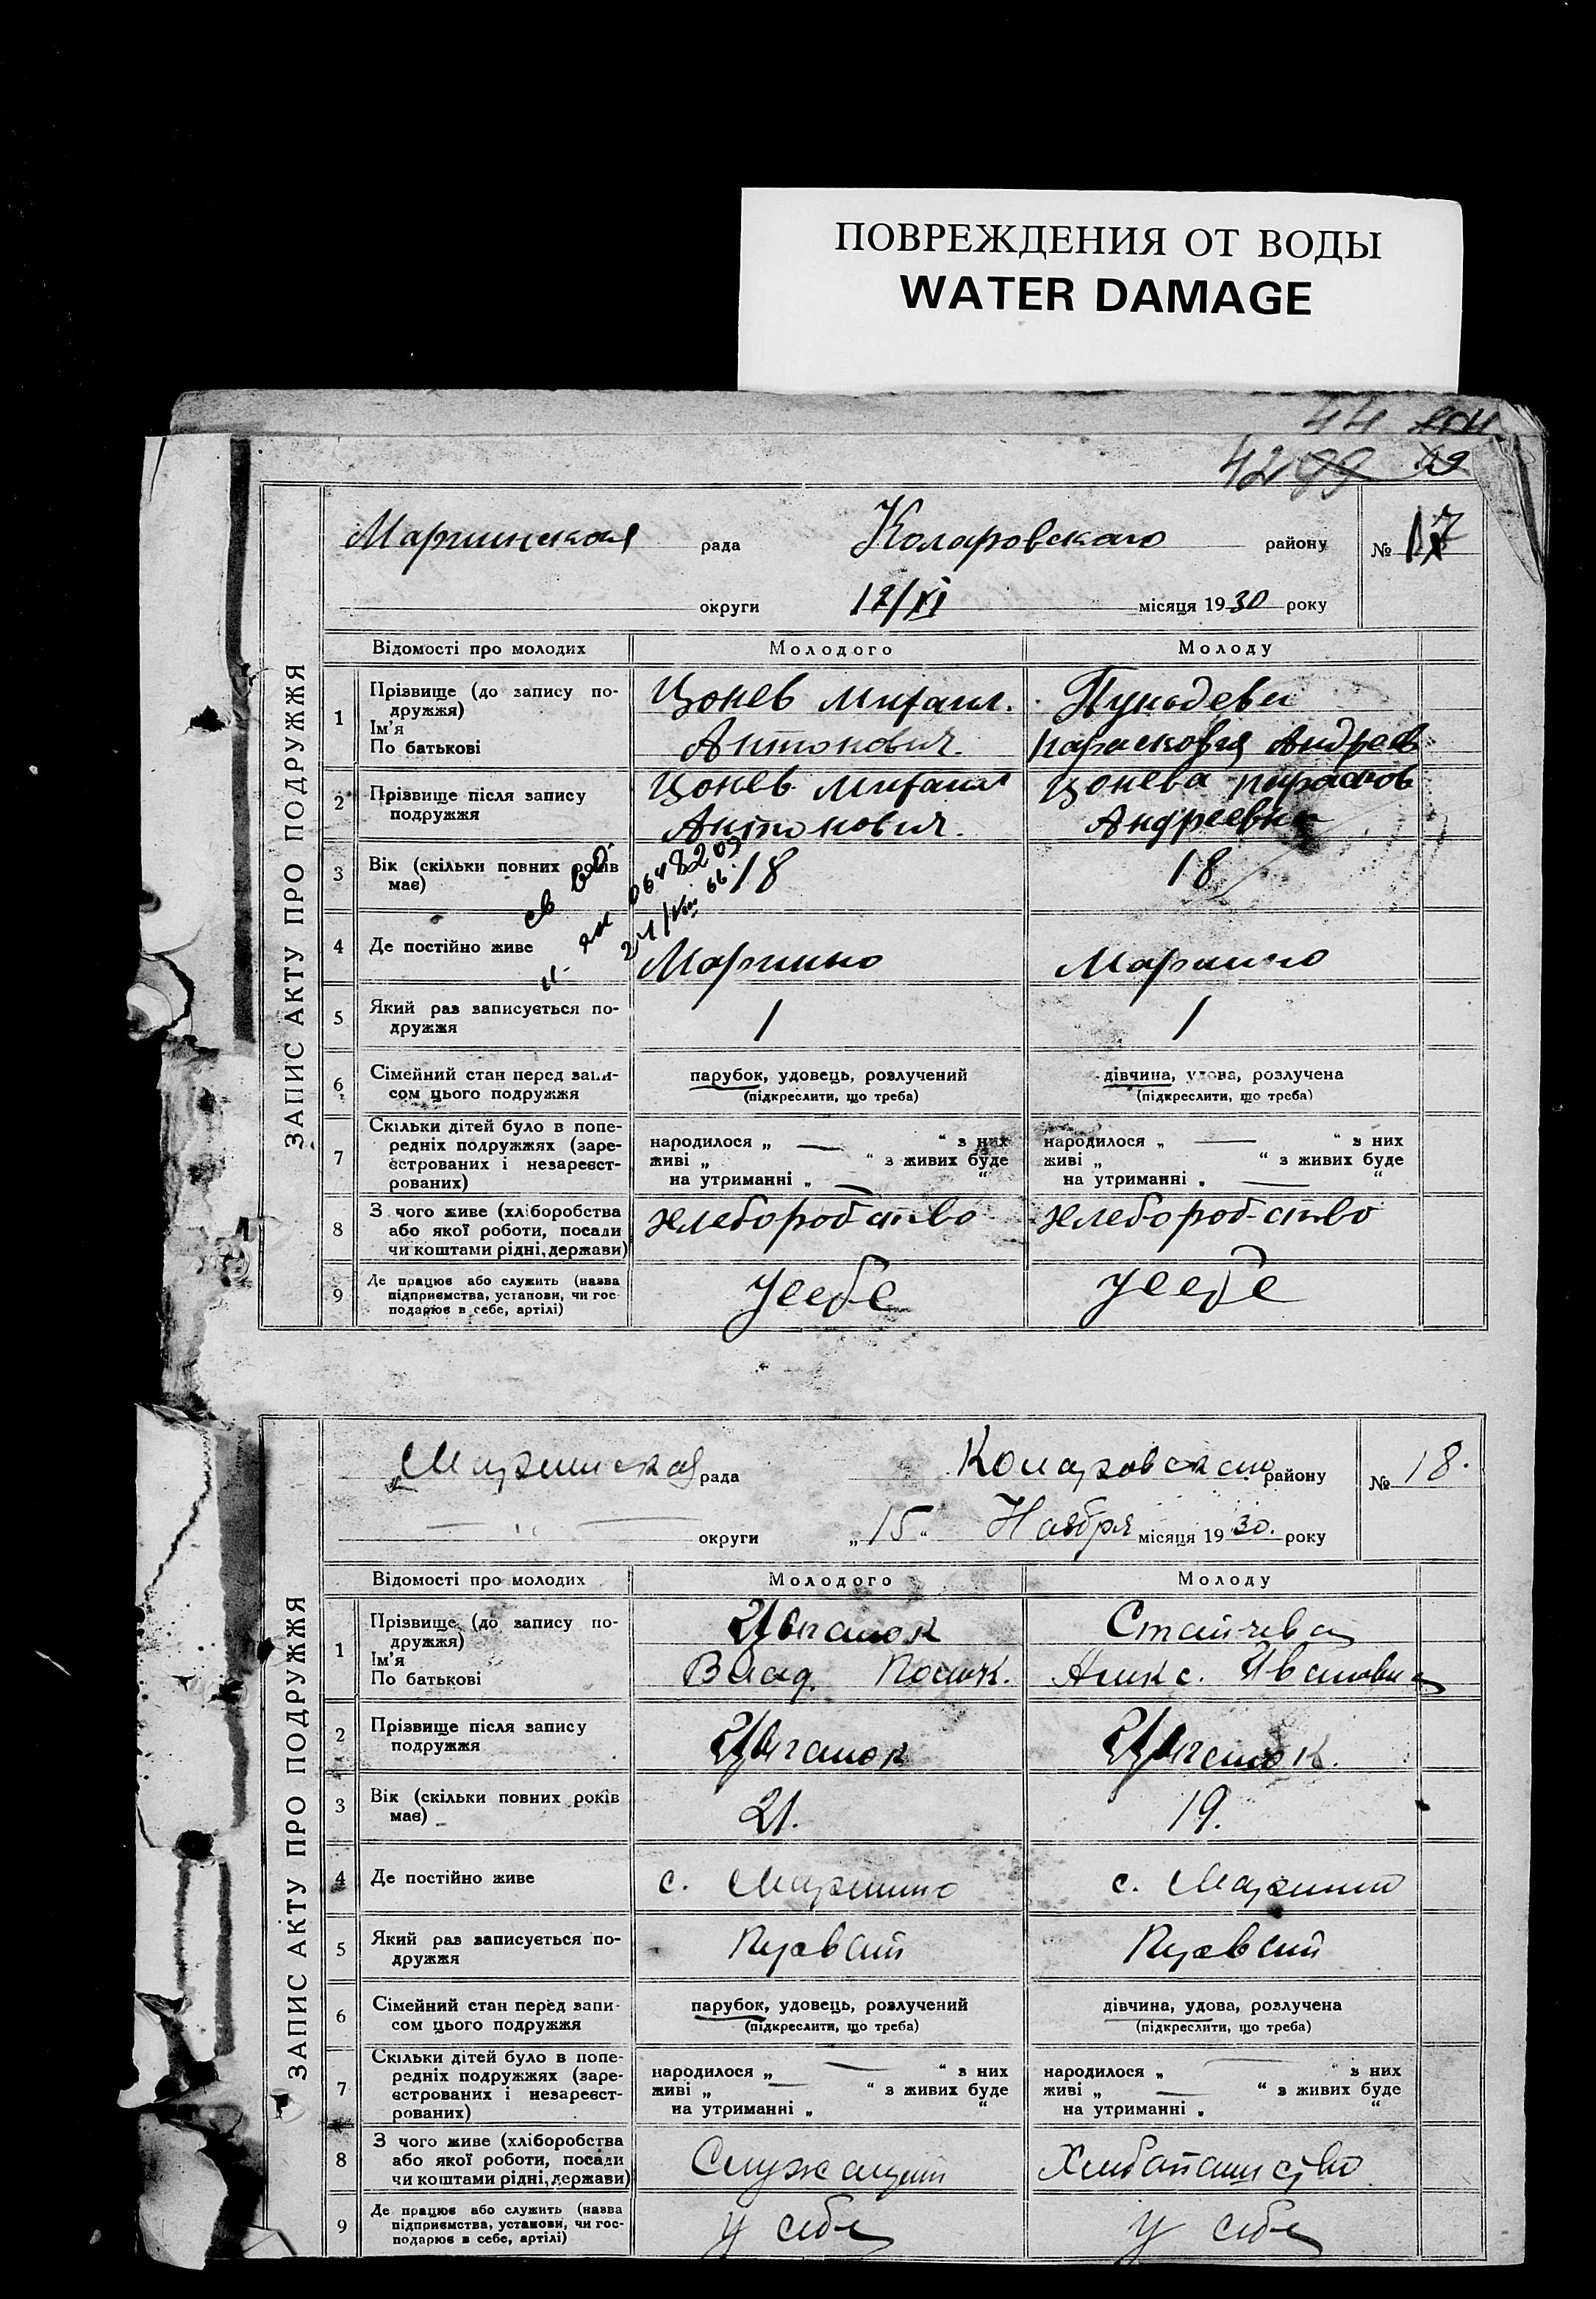 ПОВРЕЖДЕНИЯ ОТ ВОДЫ
WATER DAMAGE
44
42 99
ЗАПИС АКТУ ПРО ПОДРУЖЖЯ
Мариинская рада Коларовского району № 17
округи 12/XI місяця 1930 року
Відомості про молодих Молодого Молоду
1 Прізвище (до запису по-
дружжя)
Ім'я
По батькові
Цонев Михаил.
Антонович.
Парасковия Андреев
2 Прізвище після запису
подружжя
Цонев Михаил
Антонович.
Цонева Парасков
Андреевна
3 Вік (скільки повних років
має)
18 18
св
21/VIII 66.
4 Де постійно живе Мариино Мариино
5 Який раз записується по-
дружжя
1 1
6 Сімейний стан перед запи-
сом цього подружжя
парубок, удовець, розлучений
(підкреслити, що треба)
дівчина, удова, розлучена
(підкреслити, що треба)
7 Скільки дітей було в попе-
редніх подружжях (заре-
єстрованих і незареєст-
рованих)
народилося „ — “ з них
живі „ “ з живих буде
на утриманні „ — “
народилося „ — “ з них
живі „ “ з живих буде
на утриманні „ — “
8 З чого живе (хліборобства
або якої роботи, посади
чи коштами рідні, держави)
хлебороб-ство хлебороб-ство
9 Де працює або служить (назва
підприємства, установи, чи гос-
подарює в себе, артілі)
Усебе Усебе
ЗАПИС АКТУ ПРО ПОДРУЖЖЯ
Мариинская рада Коларовского району № 18.
округи „15“ Ноября місяця 1930. року
Відомості про молодих Молодого Молоду
1 Прізвище (до запису по-
дружжя)
Ім'я
По батькові
Цыганок
Влад.
Стайчева
Алекс. Ивановна
2 Прізвище після запису
подружжя
Цыганок Цыганок.
3 Вік (скільки повних років
має)
21. 19.
4 Де постійно живе с. Мариино с. Мариино
5 Який раз записується по-
дружжя
Первый Первый
6 Сімейний стан перед запи-
сом цього подружжя
парубок, удовець, розлучений
(підкреслити, що треба)
дівчина, удова, розлучена
(підкреслити, що треба)
7 Скільки дітей було в попе-
редніх подружжях (заре-
єстрованих і незареєст-
рованих)
народилося „ — “ з них
живі „ — “ з живих буде
на утриманні „ “
народилося „ — “ з них
живі „ — “ з живих буде
на утриманні „ “
8 З чого живе (хліборобства
або якої роботи, посади
чи коштами рідні, держави)
Служащий Хлебопашество
9 Де працює або служить (назва
підприємства, установи, чи гос-
подарює в себе, артілі)
У себе У себе